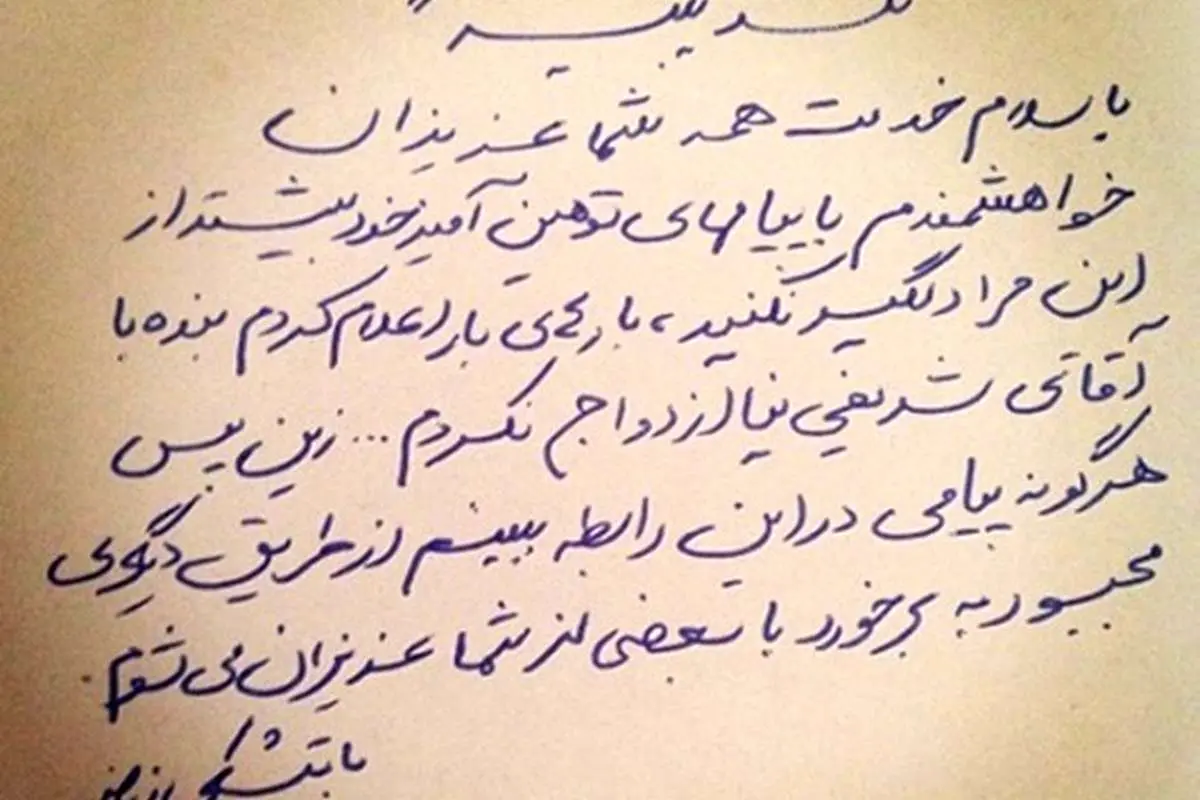 تکذیبیه
با سلام خدمت همه شما عزیزان
خواهشمندم با پیامهای توهین آمیز خود بیشتر از
این مرا دلگیر نکنید، بارها ی بار اعلام کردم بنده با
آقای شریفی نیا ازدواج نکردم... زین پس
هرگونه پیامی در این رابطه ببینم از طریق دیگری
مجبور به برخورد با بعضی از شما عزیزان می شوم.
با تشکر